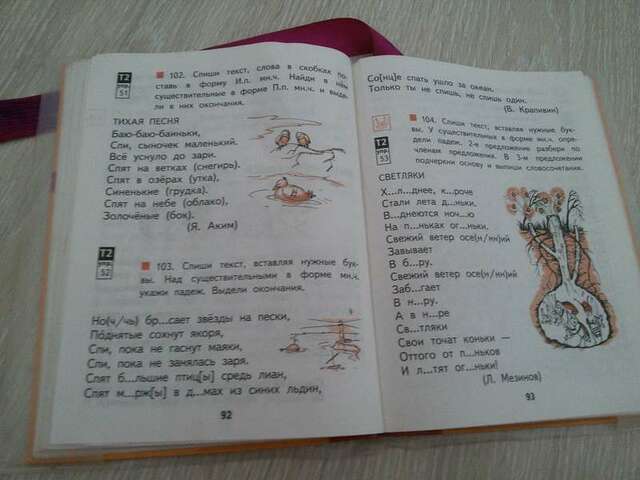 Т2
упр.
51
102. Спиши текст, слова в скобках по-
ставь в форму И.п. мн.ч. Найди в нём
существительные в форме П.п. мн.ч. и выде-
ли в них окончания.
ТИХАЯ ПЕСНЯ
Баю-баю-баиньки,
Спи, сыночек маленький.
Всё уснуло до зари.
Спят на ветках (снегирь).
Спят в озёрах (утка),
Синенькие (грудка).
Спят на небе (облако),
Золочёные (бок).
(Я. Аким)
Т2
упр.
52
103. Спиши текст, вставляя нужные бук-
вы. Над существительными в форме мн.ч.
укажи падеж. Выдели окончания.
Но(ч/чь) бр...сает звёзды на пески,
Поднятые сохнут якоря,
Спи, пока не гаснут маяки,
Спи, пока не занялась заря.
Спят б...льшие птиц[ы] средь лиан,
Спят м...рж[ы] в д...мах из синих льдин,
92
Со[нц]е спать ушло за океан.
Только ты не спишь, не спишь один.
(В. Крапивин)
Т2
упр.
53
104. Спиши текст, вставляя нужные бук-
вы. У существительных в форме мн.ч. опре-
дели падеж, 2-е предложение разбери по
членам предложения. В 3-м предложении
подчеркни основу и выпиши словосочетания.
СВЕТЛЯКИ
Х...л...днее, к...роче
Стали лета д...ньки.
В...днеются ноч...ю
На п...ньках ог...ньки.
Свежий ветер осе(н/нн)ий
Завывает
В б...ру.
Свежий ветер осе(н/нн)ий
Заб...гает
В н...ру.
А в н...ре
Св...тляки
Свои точат коньки —
Оттого от п...ньков
И л...тят ог...ньки!
(Л. Мезинов)
93